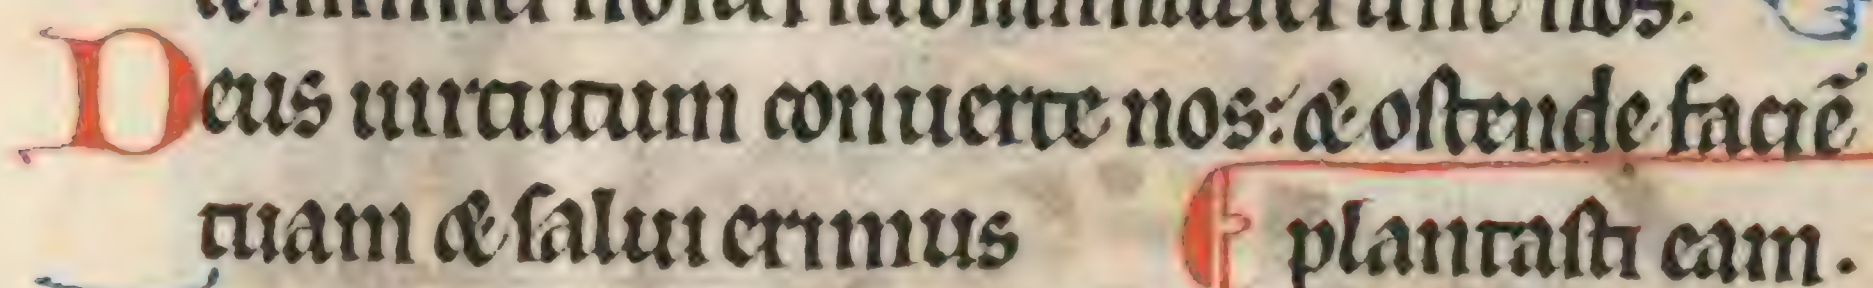 nos.
Deus uirtutum conuerte nos: & ostende faciē
tuam & salui erimus plantasti eam.